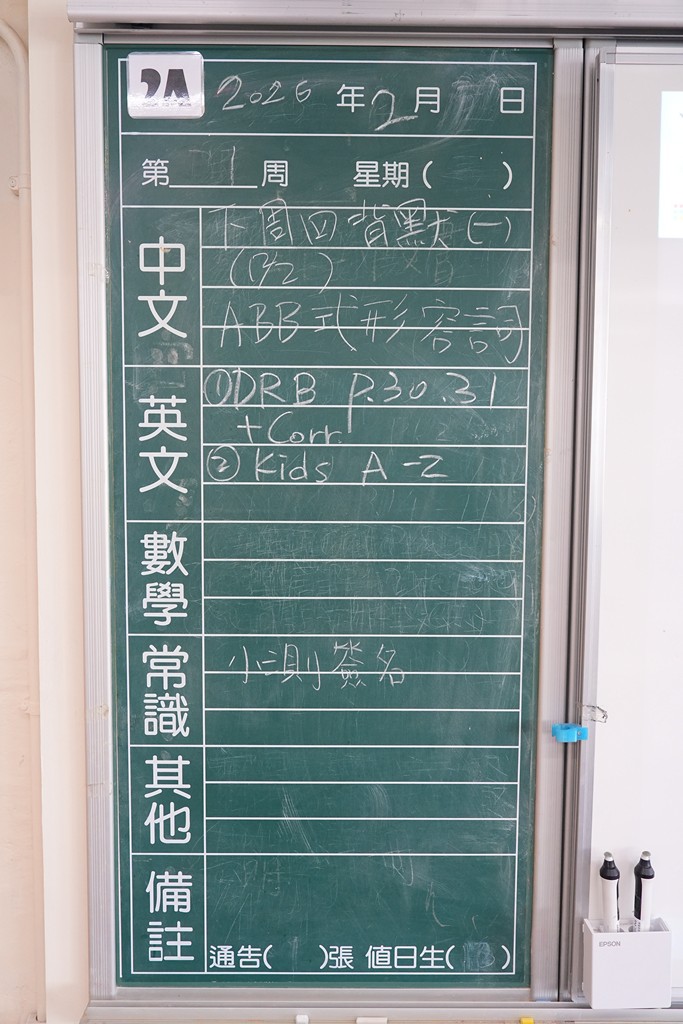 2A 2026年2月 日
第 周 星期( )
中文
下周四背默(一)
(12/2)
ABB式形容詞
英文
①DRB p.30.31
+Corr.
② Kids A-Z
數學
常識
小測簽名
其他
備註
通告( )張 值日生( )
EPSON